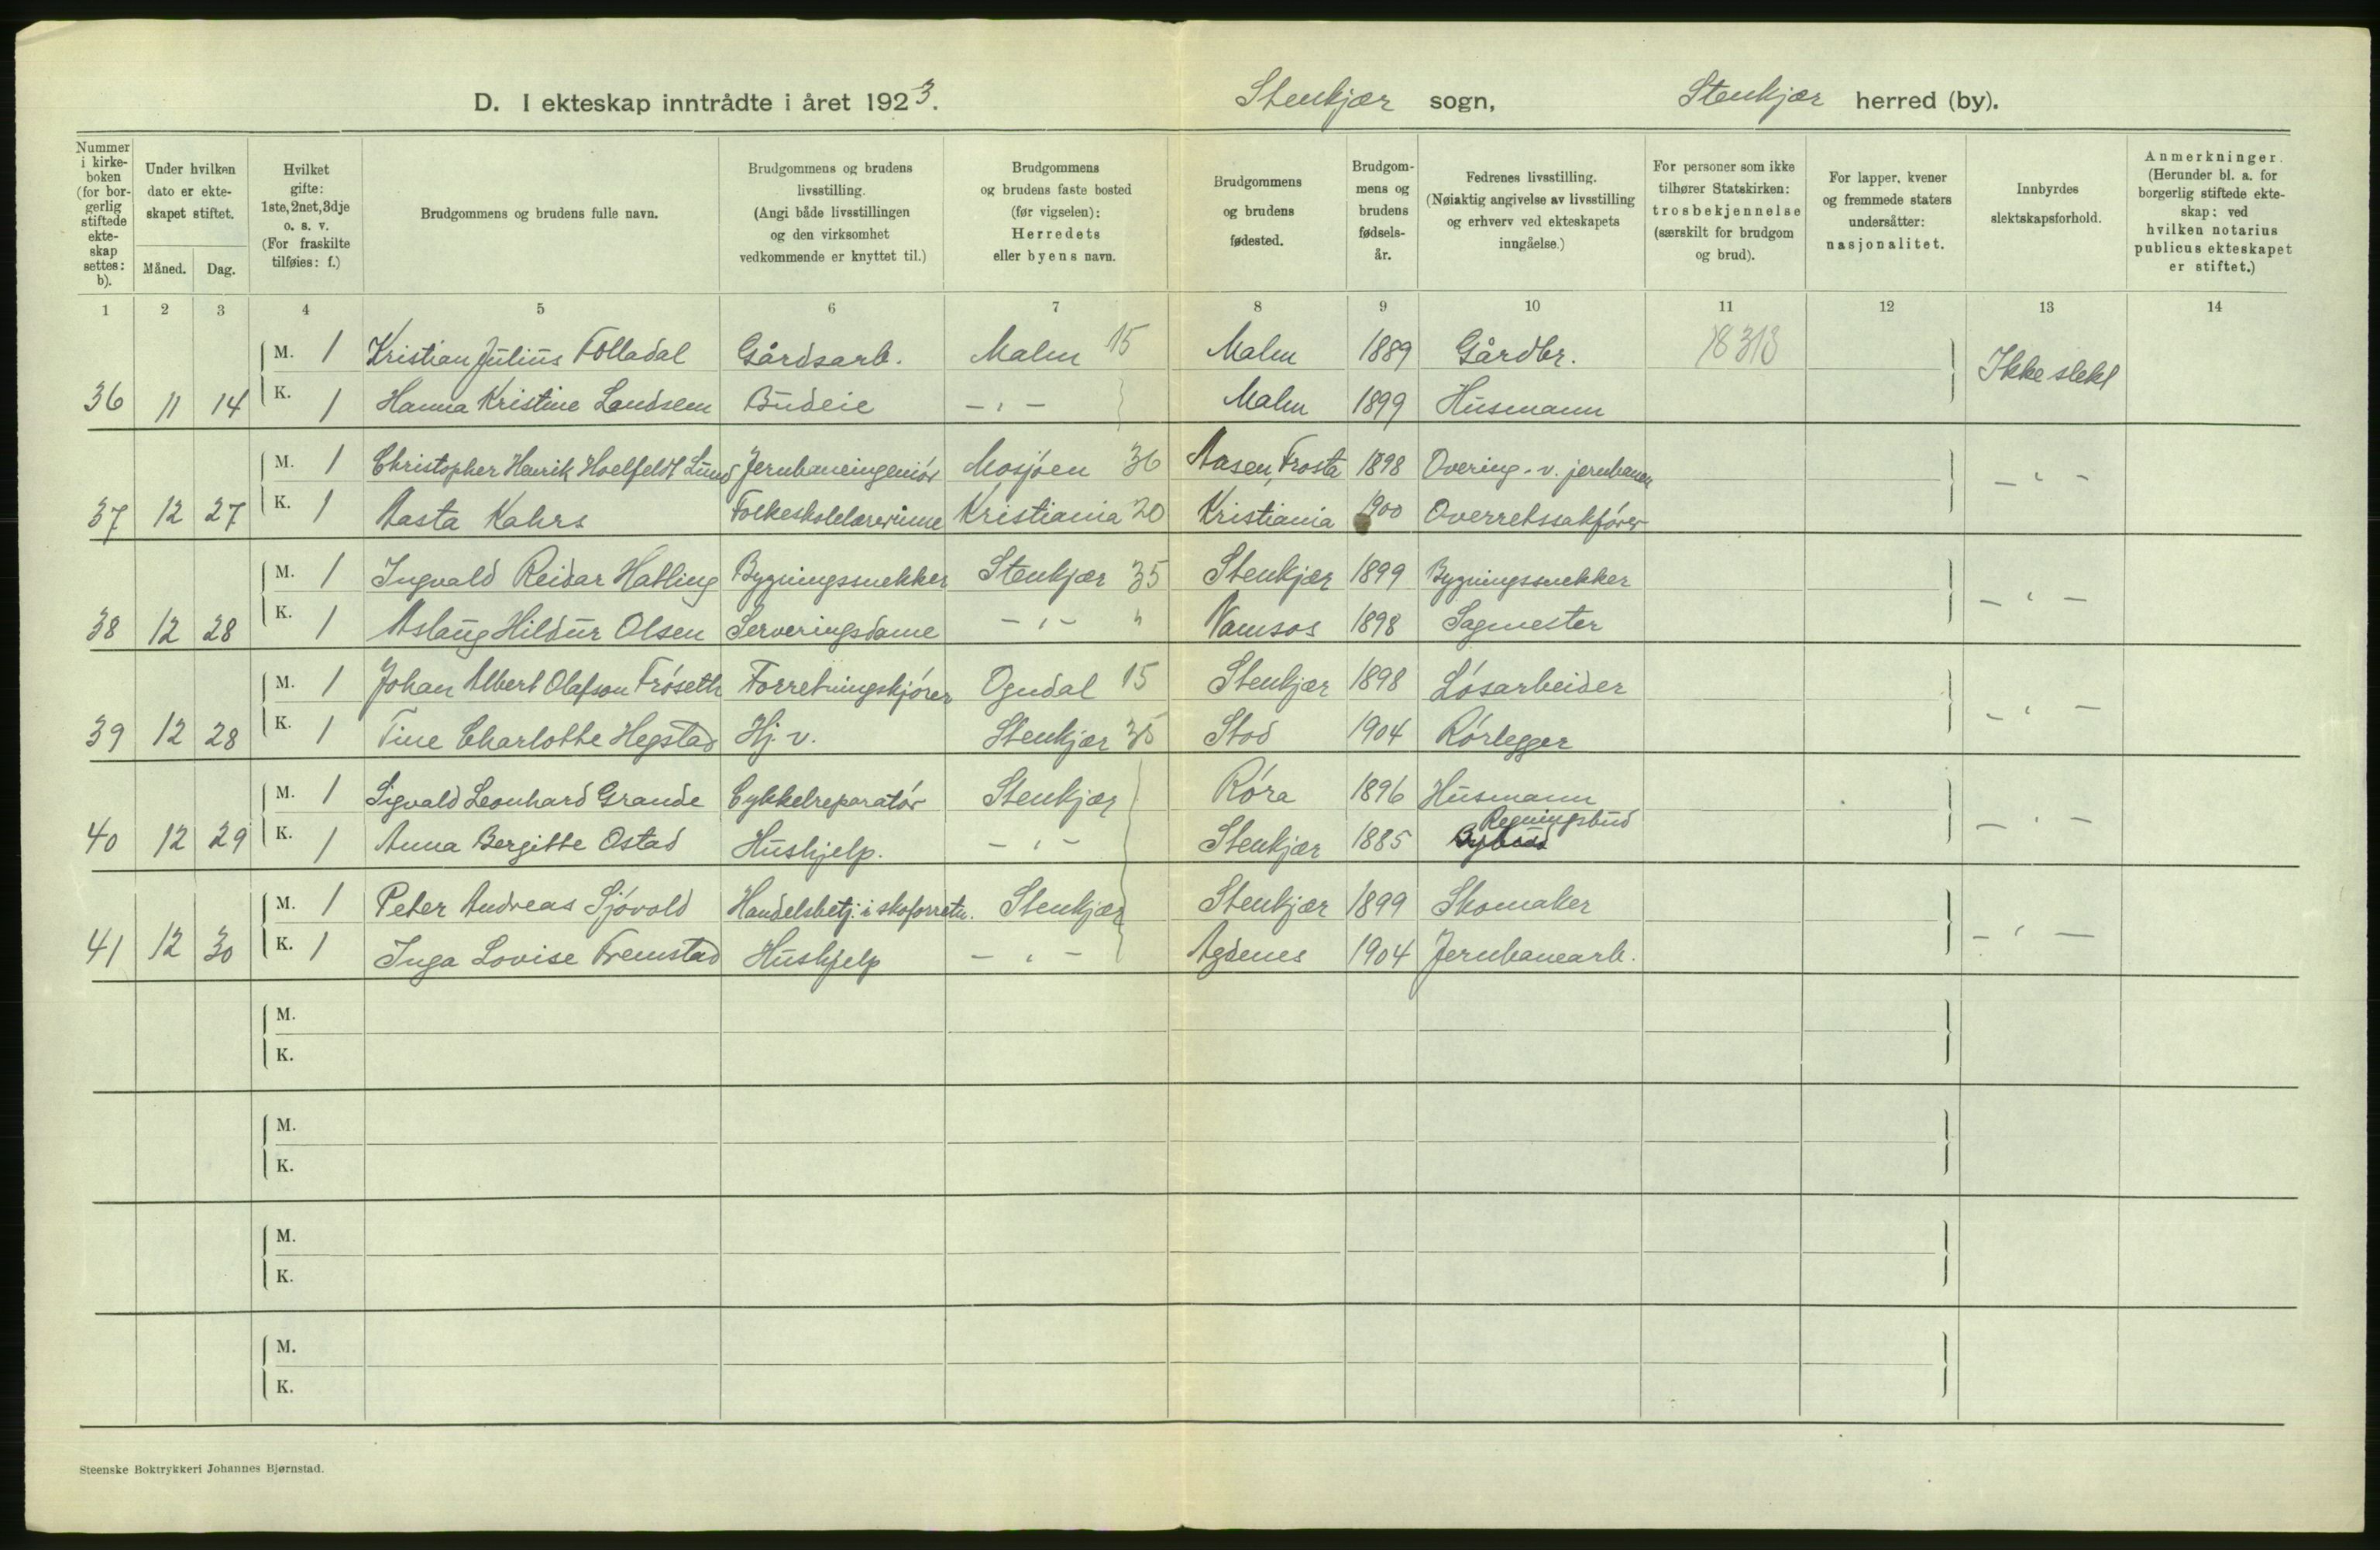 D. I ekteskap inntrådte i året 1923. Stenkjær sogn, Stenkjær herred (by).
Nummer i kirkeboken (for borgerlig stiftede ekteskap settes: b).
Under hvilken dato er ekteskapet stiftet.
Måned. Dag.
Hvilket gifte: 1ste, 2net, 3dje o. s. v. (For fraskilte tilføies: f.)
Brudgommens og brudens fulle navn.
Brudgommens og brudens livsstilling. (Angi både livsstillingen og den virksomhet vedkommende er knyttet til.)
Brudgommens og brudens faste bosted (før vigselen): Herredets eller byens navn.
Brudgommens og brudens fødested.
Brudgommens og brudens fødselsår.
Fedrenes livsstilling. (Nøiaktig angivelse av livsstilling og erhverv ved ekteskapets inngåelse.)
For personer som ikke tilhører Statskirken: trosbekjennelse (særskilt for brudgom og brud).
For lapper, kvener og fremmede staters undersåtter: nasjonalitet.
Innbyrdes slektskapsforhold.
Anmerkninger. (Herunder bl. a. for borgerlig stiftede ekteskap: ved hvilken notarius publicus ekteskapet er stiftet.)
1 2 3 4 5 6 7 8 9 10 11 12 13 14
M. 1 Kristian Julius Folladal Gårdsarb. Malm 15 Malm 1889 Gårdbr. 18313 Ikke slekt
36 11 14 K. 1 Hanna Kristine Landsem Budeie - " - Malm 1899 Husmann
M. 1 Christopher Henrik Hoelfeldt Lund Jernbaneingeniør Mosjøen 36 Aasen, Frosta 1898 Overing. v. jernbanen - " -
37 12 27 K. 1 Aasta Kahrs Folkeskolelærerinne Kristiania 20 Kristiania 1900 Overretssakfører
M. 1 Ingvald Reidar Hatling Bygningssnekker Stenkjær 35 Stenkjær 1899 Bygningssnekker - " -
38 12 28 K. 1 Aslaug Hildur Olsen Serveringsdame - " - " Namsos 1898 Sagmester
M. 1 Johan Albert Olafson Frøseth Forretningskjører Ogndal 15 Stenkjær 1898 Løsarbeider - " -
39 12 28 K. 1 Tine Charlotte Hegstad Hj. v. Stenkjær 35 Stod 1904 Rørlegger
M. 1 Sigvald Leonhard Grande Cykkelreparatør Stenkjær Røra 1896 Husmann - " -
Regningsbud
40 12 29 K. 1 Anna Bergitte Ostad Hushjelp. - " - Stenkjær 1885 Bybud
M. 1 Peter Andreas Sjøvold Handelsbetj. i skoforretn. Stenkjær Stenkjær 1899 Skomaker - " -
41 12 30 K. 1 Inga Lovise Fremstad Hushjelp - " - Agdenes 1904 Jernbanearb.
M.
K.
M.
K.
M.
K.
M.
K.
Steenske Boktrykkeri Johannes Bjørnstad.